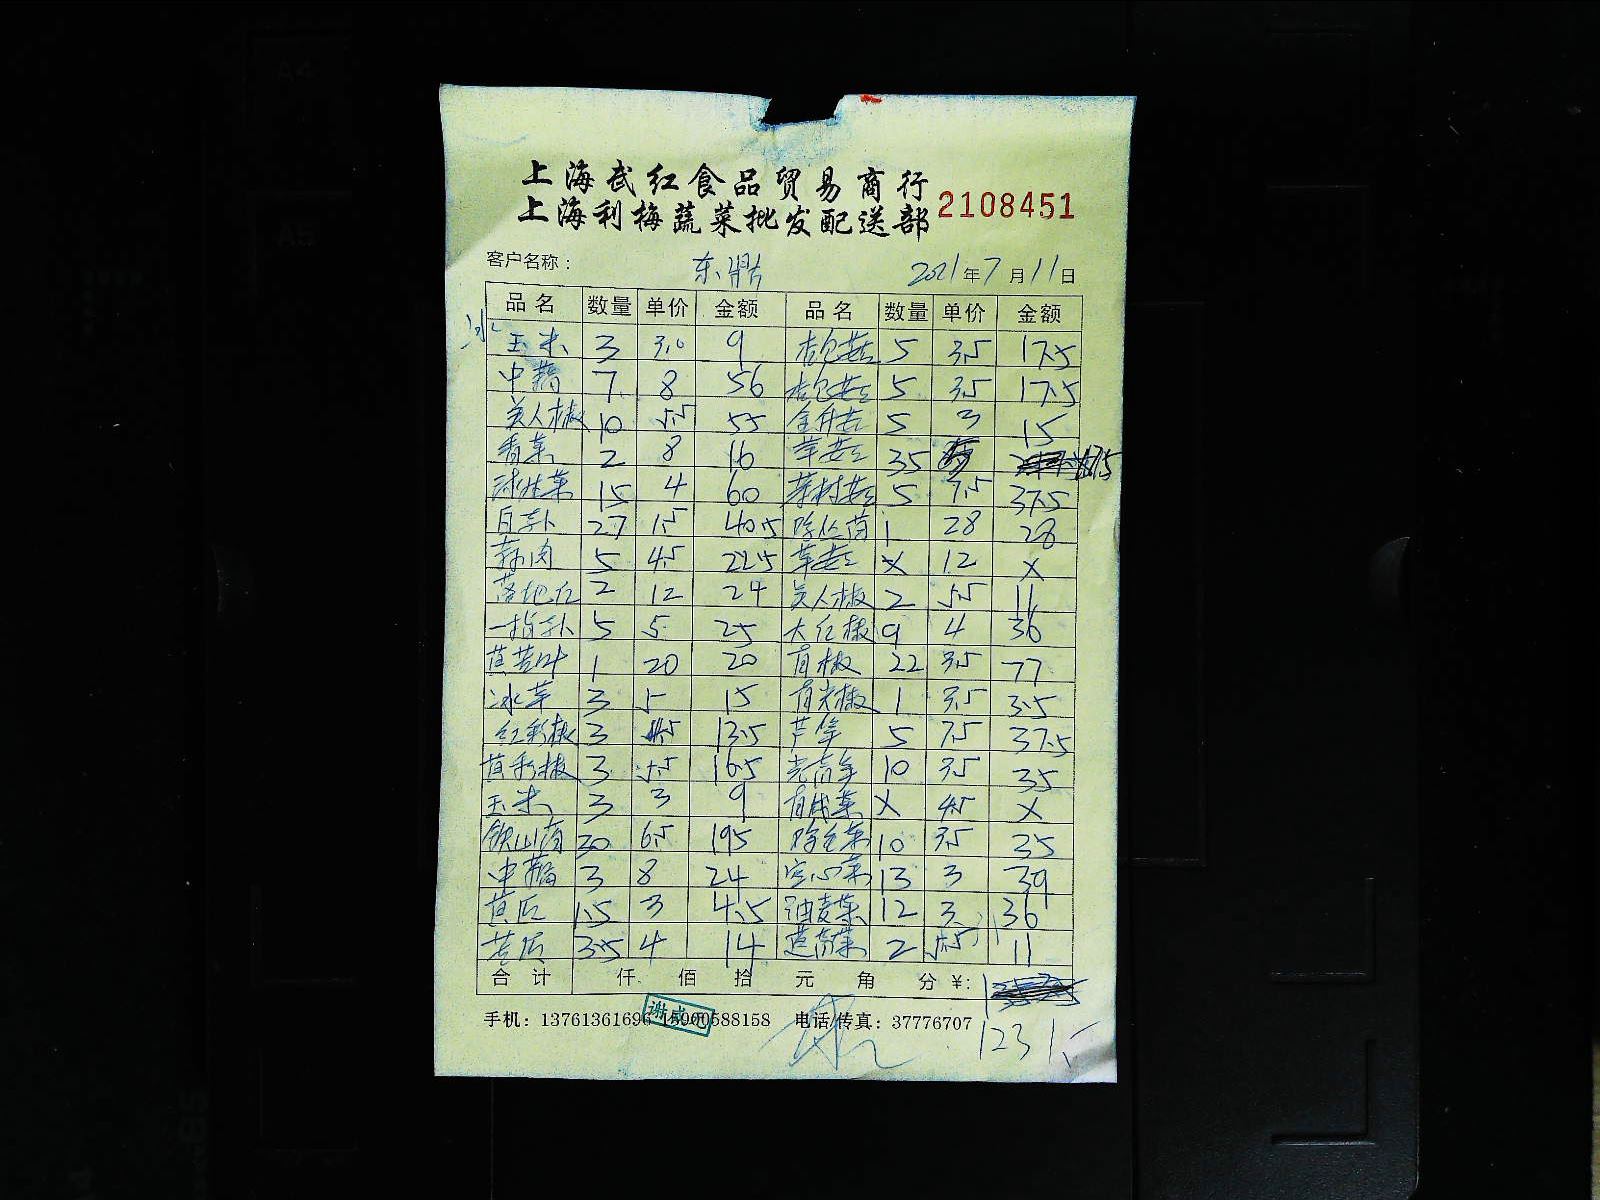 上海武红食品贸易商行
上海利梅蔬菜批发配送部 2108451
客户名称： 东鼎 2021年7月11日
品名 数量 单价 金额 品名 数量 单价 金额
玉米 3 3.0 9 杏包菇 5 3.5 17.5
中藕 7 8 56 杏包菇 5 3.5 17.5
美人椒 10 5.5 55 金针菇 5 3 15
香菜 2 8 16 草菇 35
球生菜 15 4 60 茶树菇 5 7.5 37.5
白卜 27 1.5 40.5 1 28 28
蒜肉 5 4.5 22.5 草菇 x 12 x
2 12 24 美人椒 2 5.5 11
一指卜 5 5 25 大红椒 9 4 36
叶 1 20 20 青椒 22 3.5 77
冰草 3 5 15 青尖椒 1 3.5 3.5
红彩椒 3 4.5 13.5 芦笋 5 7.5 37.5
黄彩椒 3 5.5 16.5 10 3.5 35
玉米 3 3 9 菜 x 4.5 x
铁山药 30 6.5 195 菜 10 3.5 35
中藕 3 8 24 空心菜 13 3 39
黄瓜 1.5 3 4.5 油麦菜 12 3 36
3.5 4 14 茼蒿菜 2 5.5 11
合计 仟 佰 拾 元 角 分 ¥:
手机：13761361696 15900588158 电话/传真：37776707
谢成元
1231.5